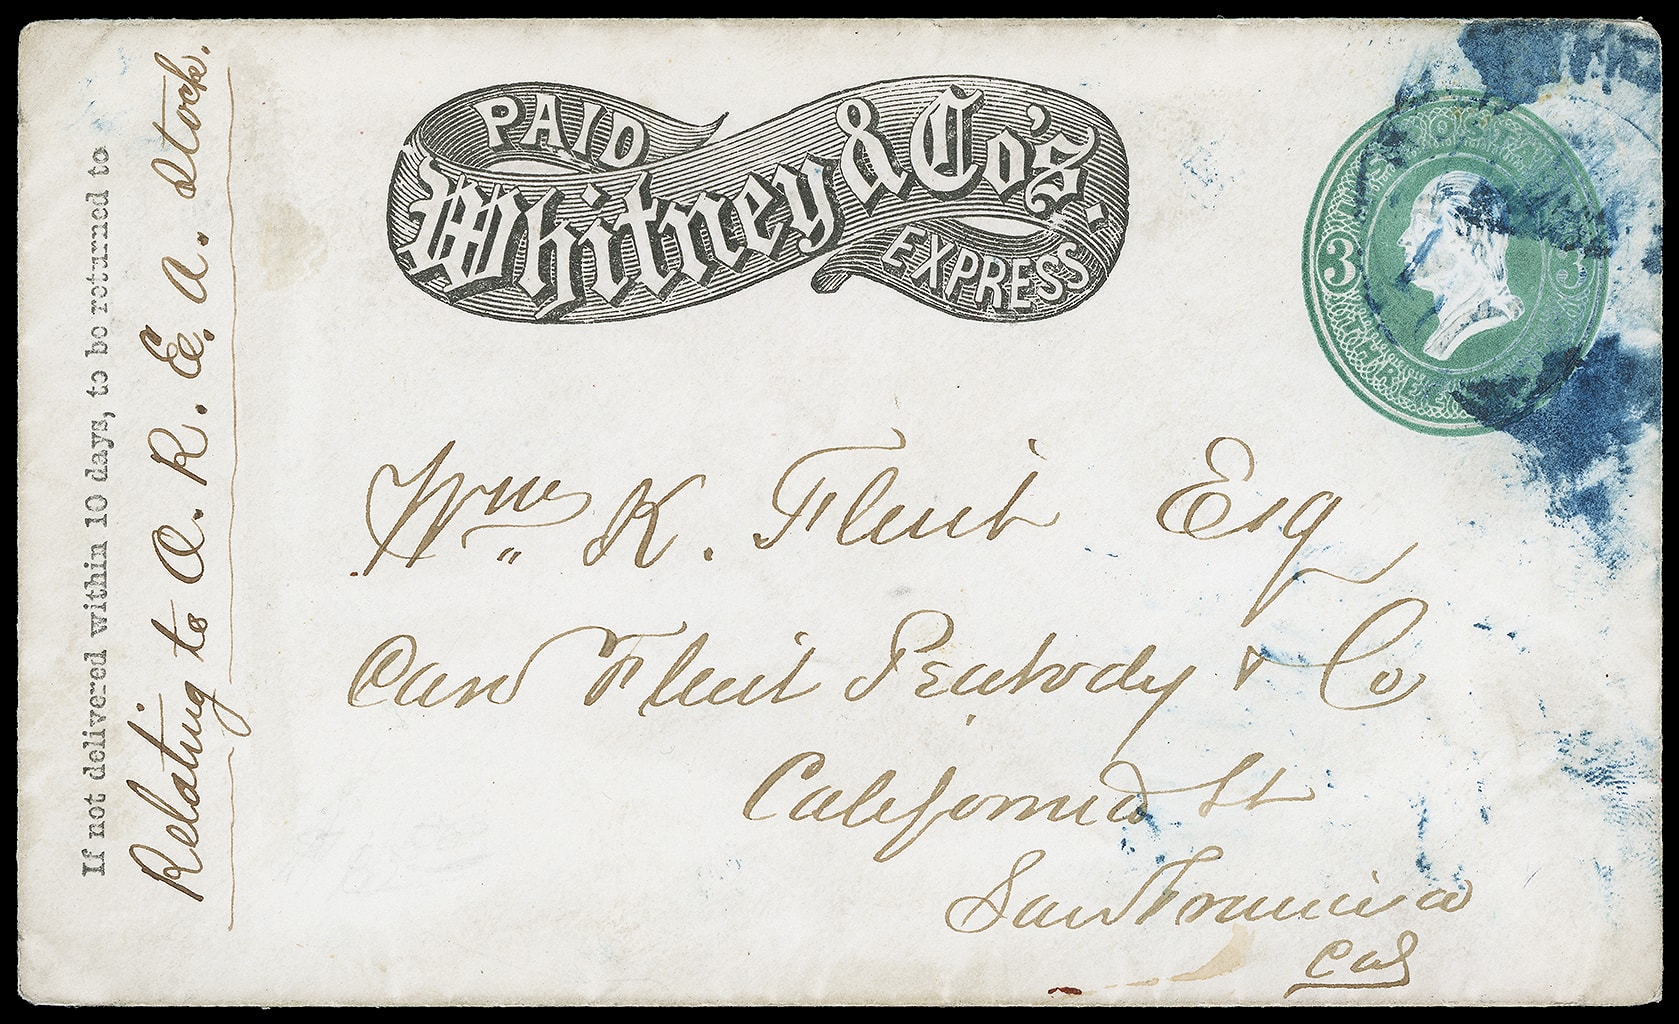 PAID
Whitney & Co's.
EXPRESS
U.S. POSTAGE
3 3
THREE
Wm K. Flint Esq
Care Flint Peabody & Co
California St
San Francisco
Cal
If not delivered within 10 days, to be returned to
Relating to A. R. E. A. Stock.